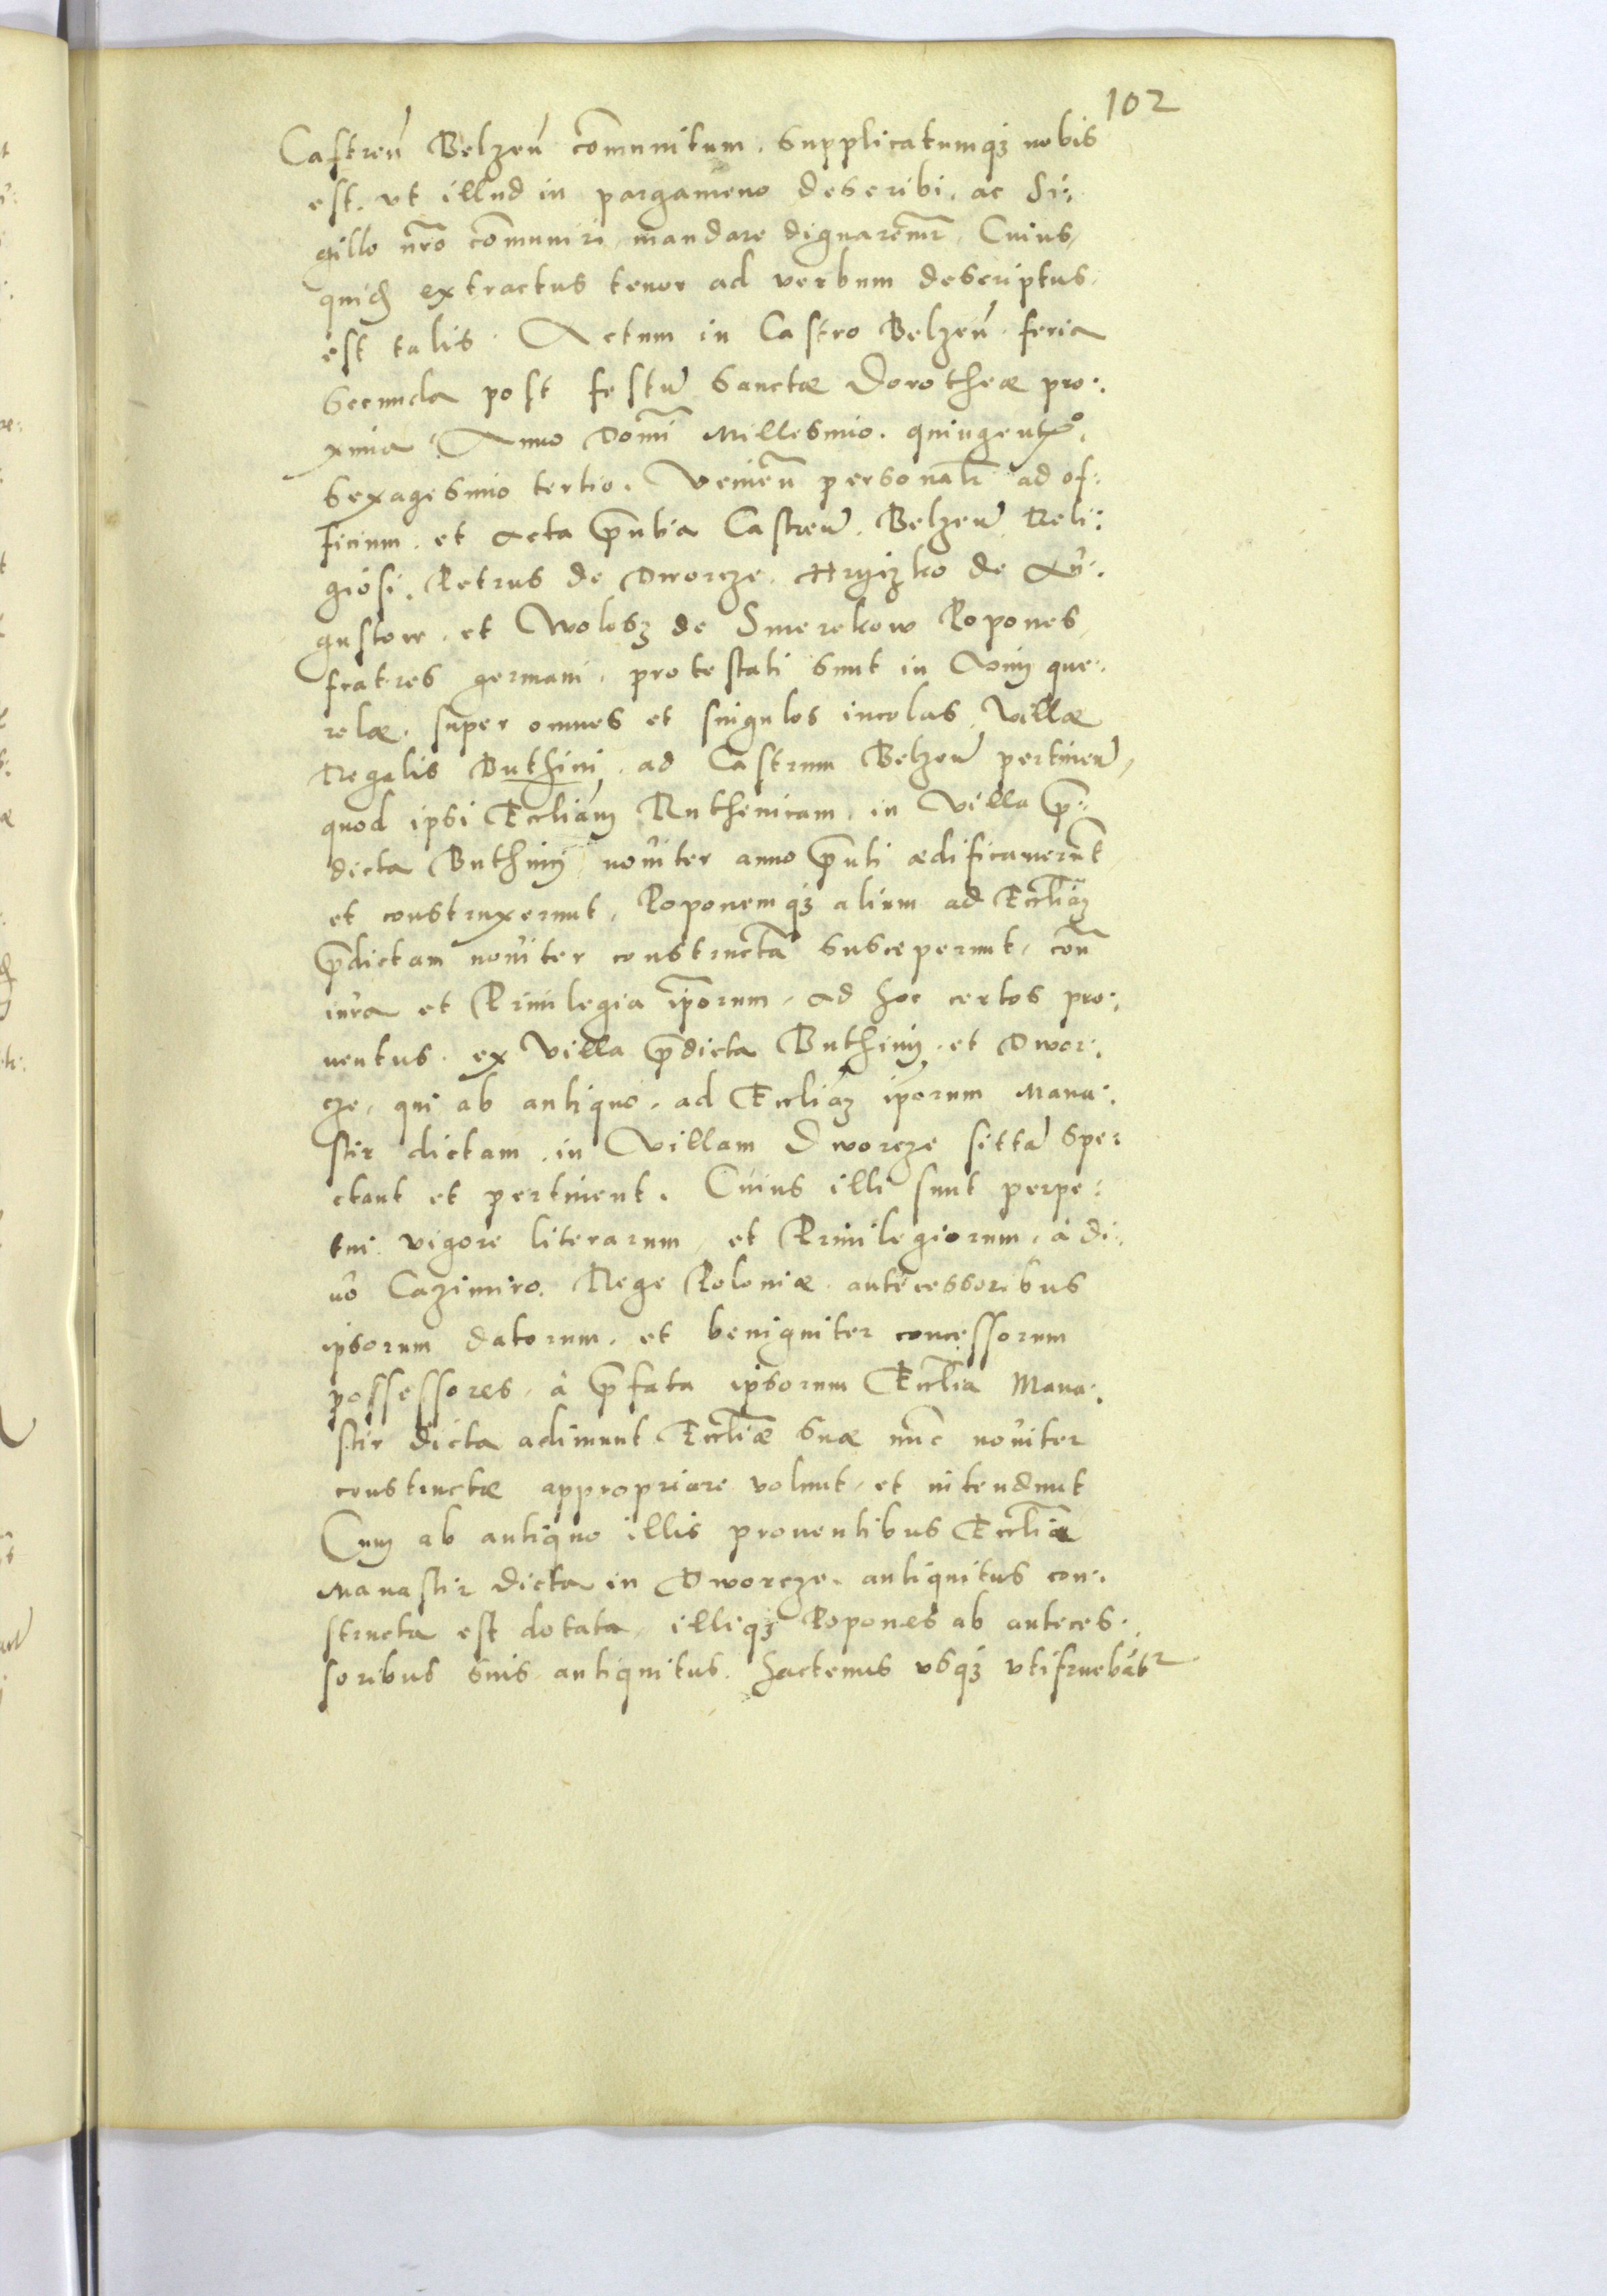 102
Castren̄ Belzen̄ com̄unitum. Supplicatumqꝫ nobis
est. vt illud in pargameno describi. ac Si:
gillo nr̄o com̄uniri, mandare dignaremr̄. Cuius
quid̄ extractus tenor ad verbum descriptus
est talis. Actum in Castro Belzen̄. feria
Secunda post festū Sanctæ Dorotheæ pro:
xima Anno Domī Millesimo. quingentoº.
Sexagesimo tertio. Venien̄ personalr̄ ad of:
ficium. et Acta p̄ntia Castren̄. Belzen̄ Reli:
giosi. Petrus de Dworcze. Hryczko de Au:
gustow. et Wolosz de Smerekow Popones
fratres germani. protestati sunt in vim que:
relæ. super omnes et singulos incolas Villæ
Regalis Buthini. ad Castrum Belzen̄ pertinen̄,
quod ipsi Eccliam̄ Ruthenicam. in Villa p̄:
dicta Buthiny nouiter anno p̄nti ædificauerūt
et construxerunt, Poponemqꝫ alium ad Eccliam̄
p̄dictam nouiter constructā susceperunt, con̄
iura et Priuilegia ip̄orum, ad hoc certos pro:
uentus. ex Villa p̄dicta Buthiny. et Dwor:
cze, qui ab antiquo. ad Eccliam̄ ip̄orum Mana:
stir dictam. in Villam Dworcze sittā spe:
ctant et pertinent. Cuius illi sunt perpe:
tui vigore literarum, et Priuilegiorum, à di:
uo Cazimiro. Rege Poloniæ antecessoribus
ipsorum datorum. et benigniter concessorum
possessores, à p̄fata ipsorum Ecclīa Mana:
stir dicta adimunt Ecclīæ suæ nūc nouiter
constructæ appropriare volunt, et nitendunt
Cum ab antiquo illis prouentibus Ecclīa
Manastir dicta in Dworcze. antiquitus con:
structa est dotata, illiqꝫ Popones ab anteces:
soribus suis antiquitus. hactenus vsqꝫ vtifruebātr